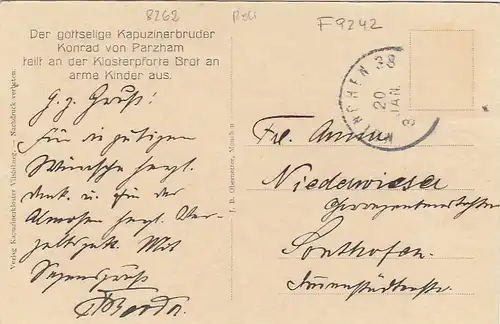 8262
F 9242
Der gottselige Kapuzinerbruder
Konrad von Parzham
teilt an der Klosterpforte Brot an
arme Kinder aus.
G. z. Gruß!
Für die gütigen
Wünsche herzl.
Dank u. für das
Almosen herzl. Ver-
gelts Gott. Mit
Segensgruß
Verlag Kapuzinerkloster Vilsbiburg. — Nachdruck verboten.
J. B. Obernetter, München
MÜNCHEN 38
20
JAN.
Frl. Anna
Niederwieser
Sonthofen.
Immenstädterstr.